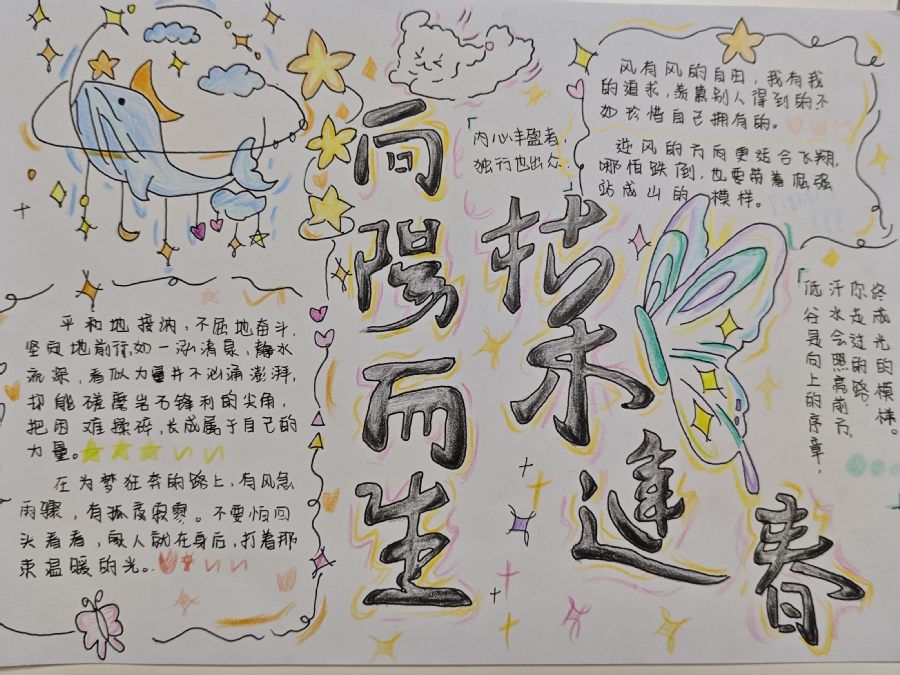 向陽而生
枯木逢春
「内心丰盈者,
独行也出众.」
风有风的自由,我有我
的追求,羡慕别人得到的不
如珍惜自己拥有的。
逆风的方向更适合飞翔,
哪怕跌倒,也要带着倔强
站成山的模样。
终成光的模样。
你走过的路,
汗水会照亮前方,
低谷是向上的序章,
平和地接纳,不屈地奋斗,
坚定地前行,如一泓清泉,静水
流深,看似力量并不汹涌澎湃,
却能磋磨岩石锋利的尖角,
把困难揉碎,长成属于自己的
力量。
在为梦狂奔的路上,有风急
雨骤,有孤度寂寥。不要怕回
头看看,家人就在身后,打着那
束温暖的光。